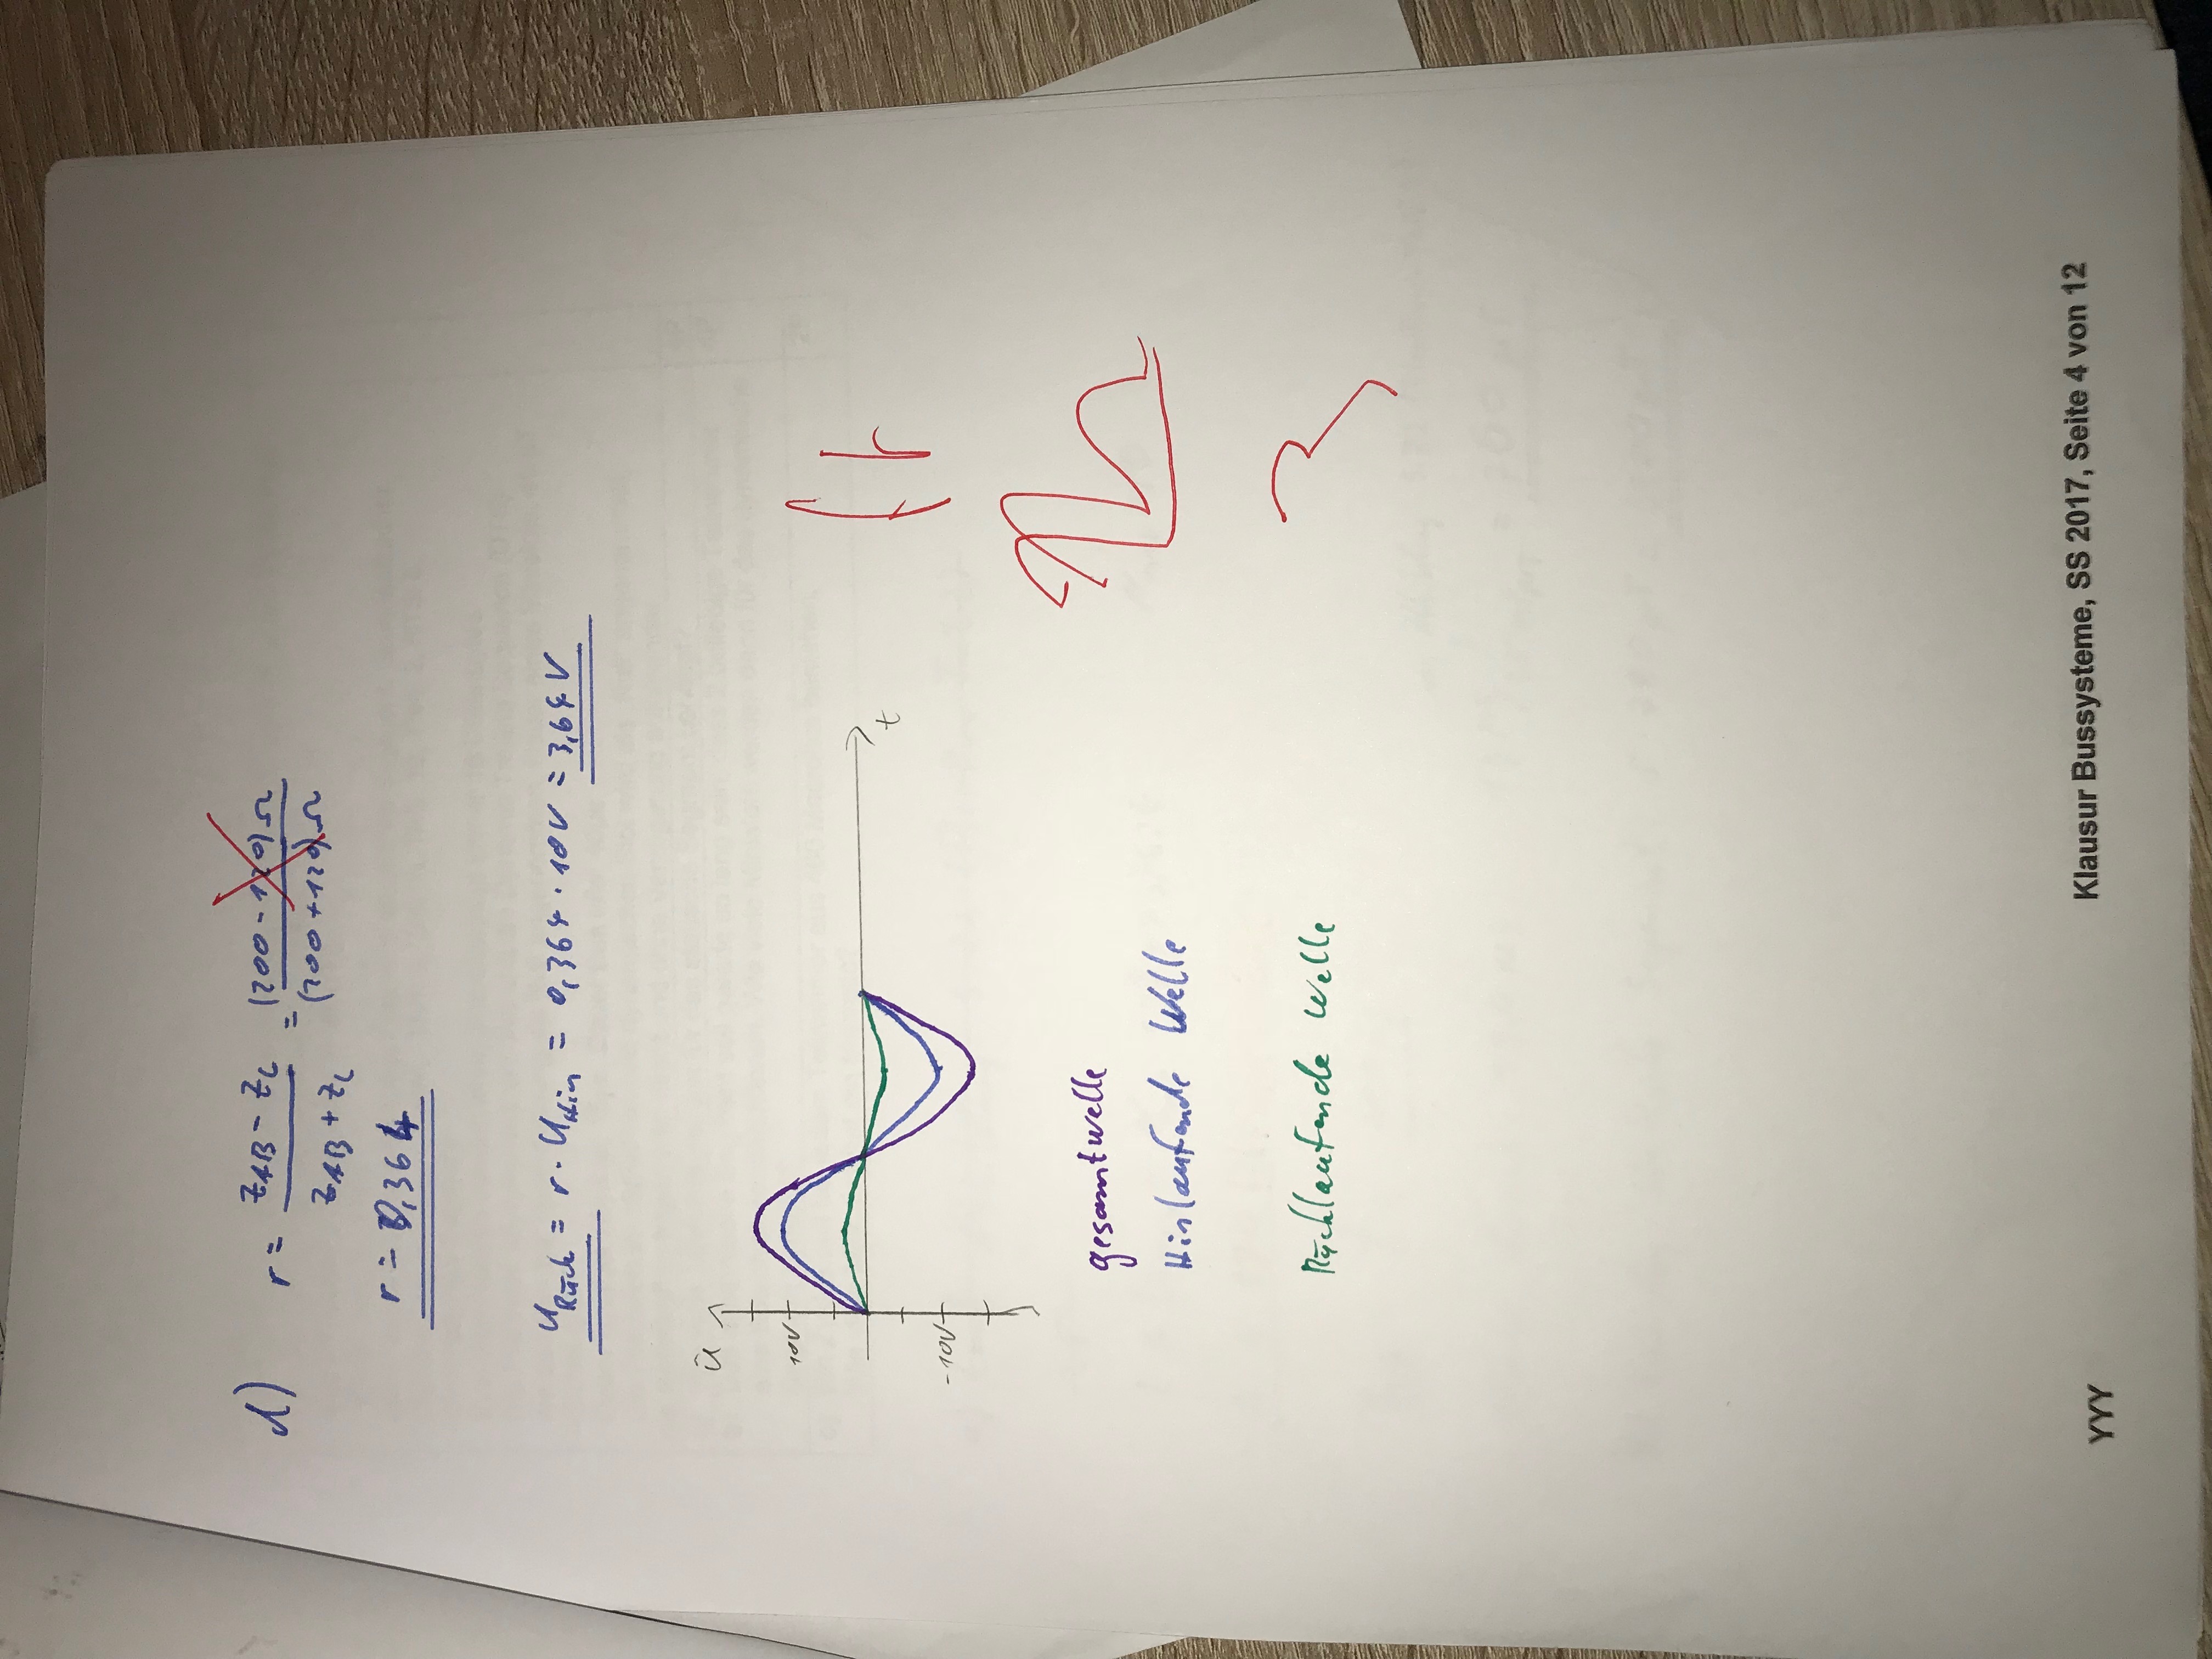 d) r = (Z_AB - Z_L) / (Z_AB + Z_L) = (200 - 120) Ω / (200 + 120) Ω
r = 0,364
U_Rück = r · U_Hin = 0,364 · 10V = 3,64 V
û
10V
t
-10V
gesamtwelle
Hinlaufende Welle
Rücklaufende Welle
YYY
Klausur Bussysteme, SS 2017, Seite 4 von 12